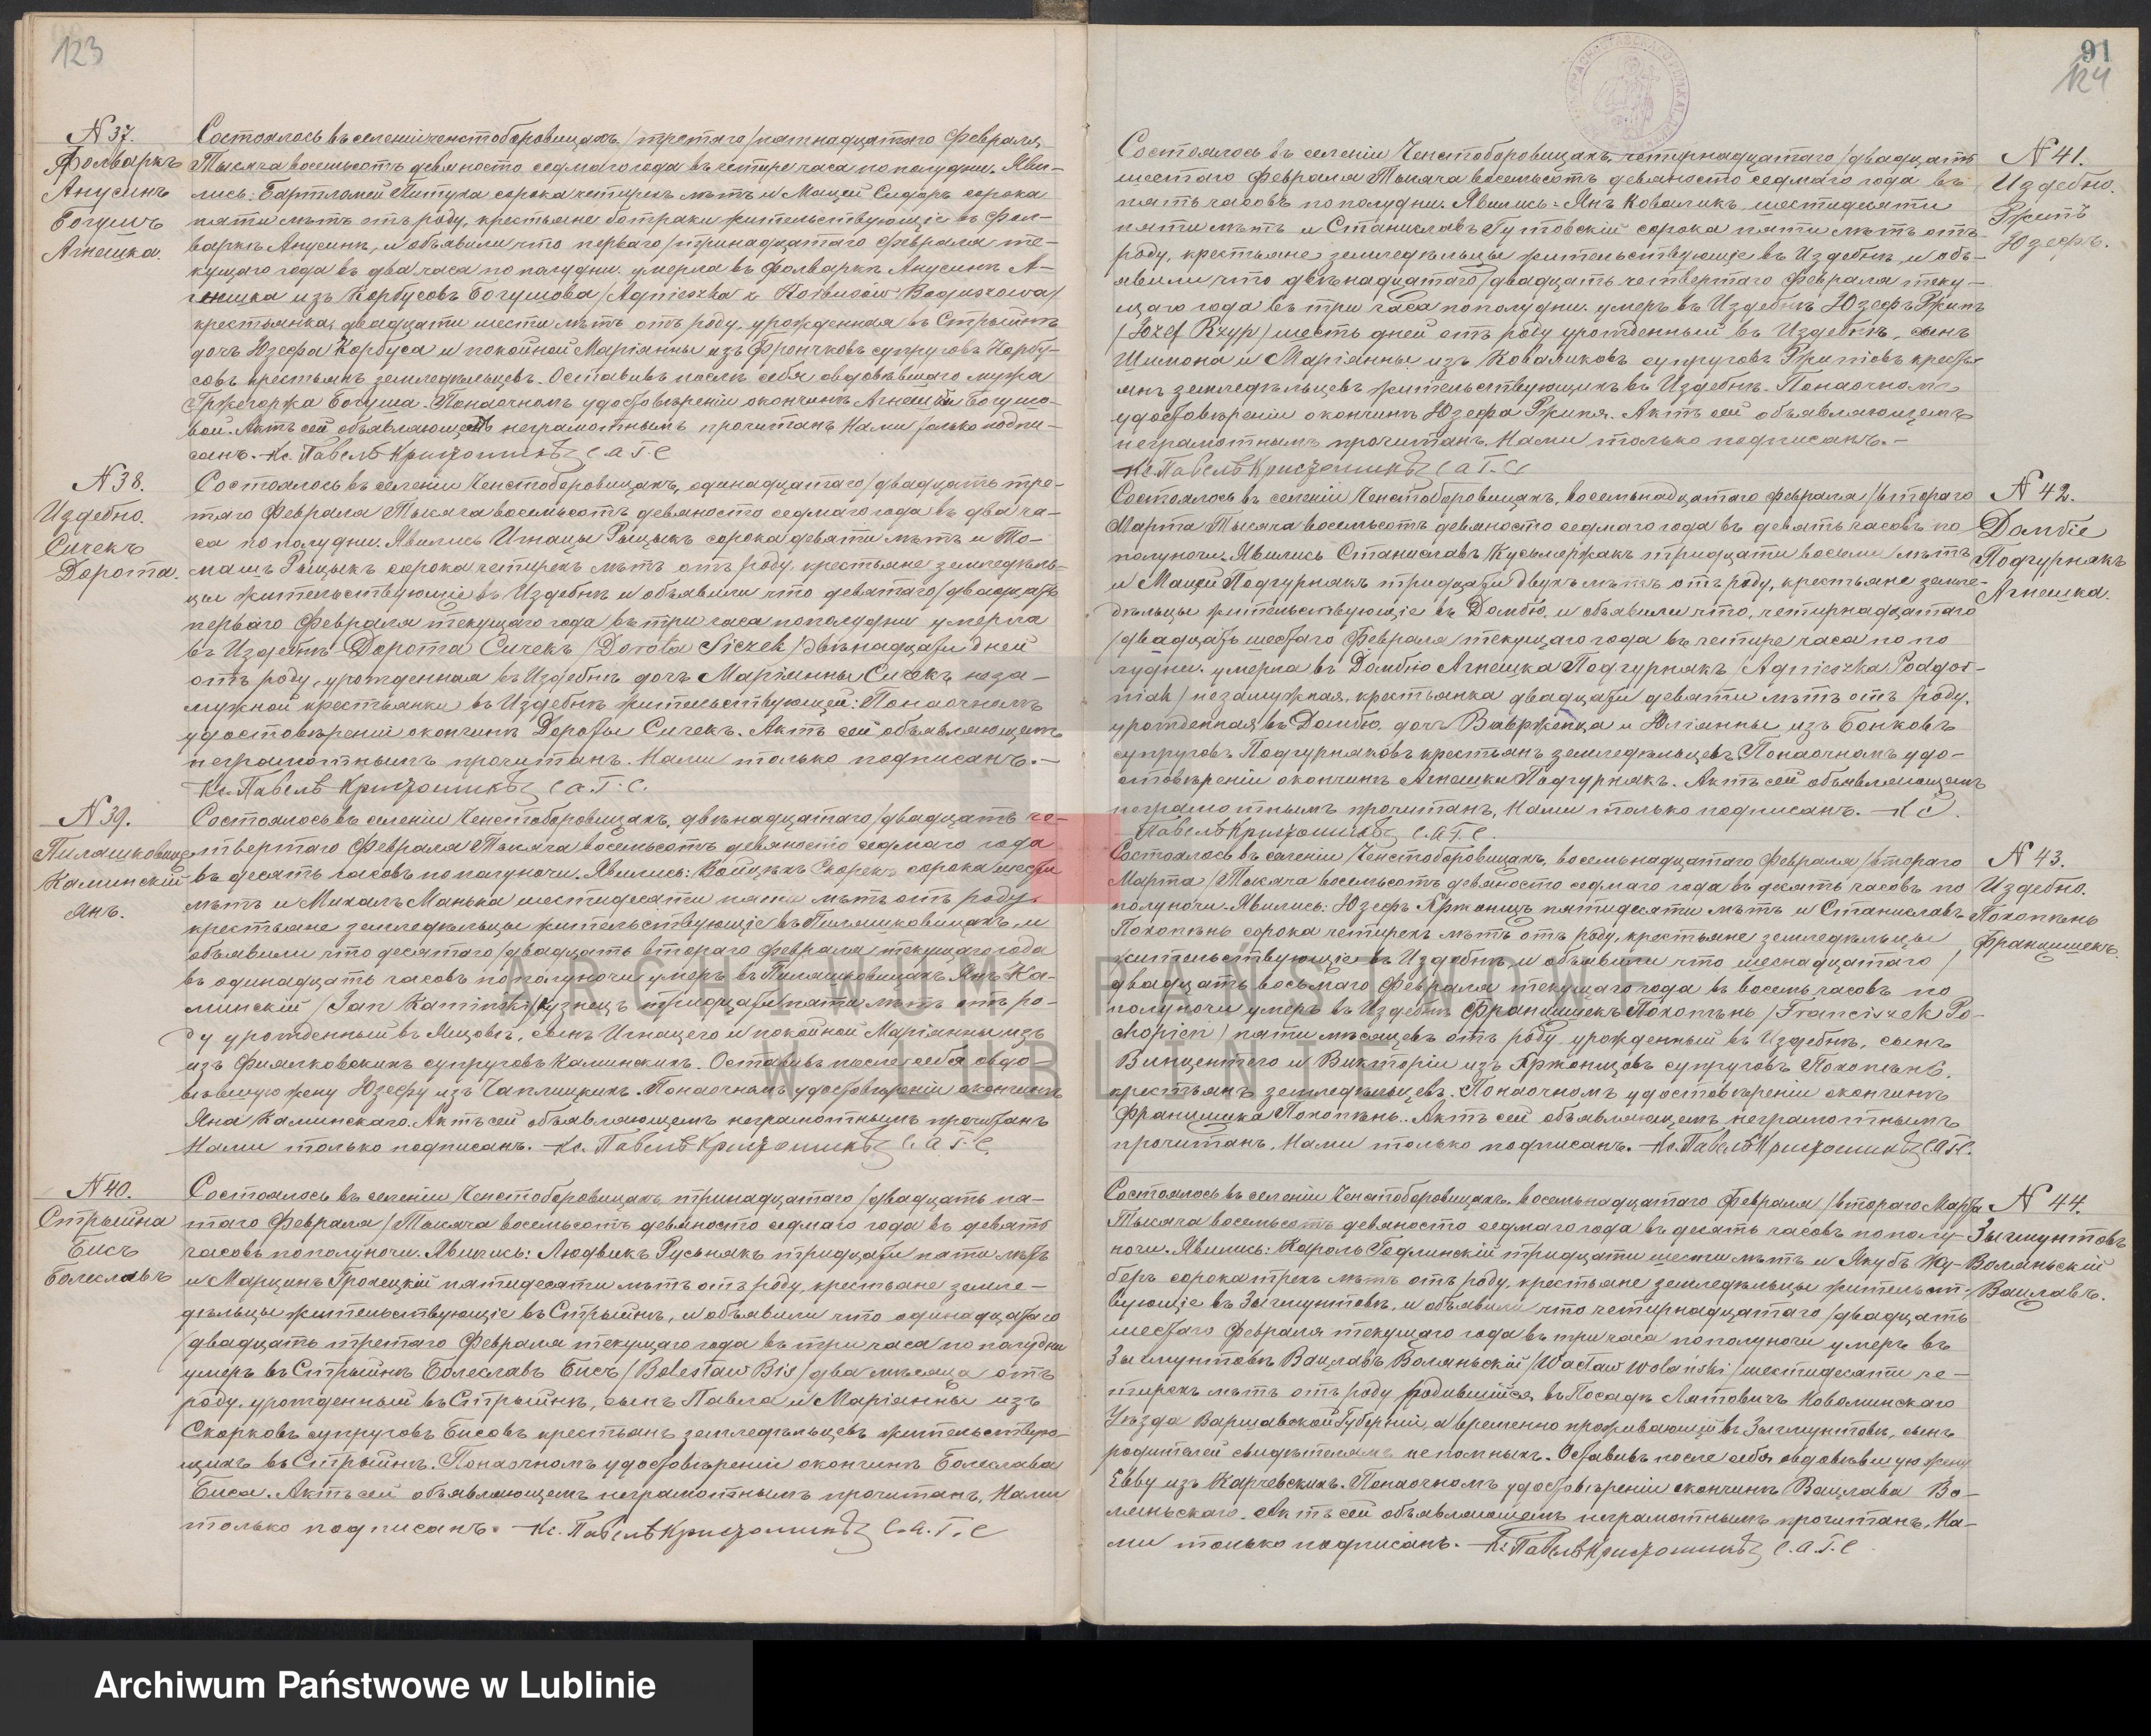 123
N 37.
Фольваркъ
Анусинъ
Богушъ
Агнешка.
Состоялось въ селеніи Ченстоборовицахъ, /третяго/ пятнадцатого Февраля,
Тысяча восемьсотъ девяносто седмаго года въ четыре часа по полудни. Яви-
лись: Бартломей Питула сорока четырехъ лѣтъ и Мацей Сидоръ сорока
пяти лѣтъ отъ роду, крестьяне ботраки жительствующіе въ Фол-
варкѣ Анусинѣ, и объявили что перваго /тринадцатаго Февраля те-
кущаго года въ два часа по полудни умерла въ Фолваркѣ Анусинѣ А-
гнешка изъ Корбусовъ Богушова /Agnieszka z Korbusów Boguszowa/
крестьянка, двадцати шести лѣтъ отъ роду, урожденная въ Стрыйнѣ
дочь Юзефа Корбуса и покойной Маріянны изъ Фрончковъ супруговъ Корбу-
совъ крестьянъ земледѣльцевъ. Оставивъ послѣ себя овдовѣвшаго мужа
Гржегоржа Богуша. По наочномъ удостовѣреніи окончинѣ Агнешки Богушо-
вой. Актъ сей объявляющемъ неграмотнымъ прочитанъ Нами только подпи-
санъ. Кс. Павелъ С.А.Г.С
N 38.
Издебно.
Сичекъ
Дорота.
Состоялось въ селеніи Ченстоборовицахъ, одинадцатаго /двадцать тре-
тяго Февраля Тысяча восемьсотъ девяносто седмаго года въ два ча-
са по полудни. Явились Игнацы Рыцыкъ сорока девяти лѣтъ и То-
машъ Рыцыкъ сорока четырехъ лѣтъ отъ роду, крестьяне земледѣль-
цы жительствующіе въ Издебнѣ и объявили что девятаго /двадцать
перваго Февраля текущаго года въ три часа по полудни умерла
въ Издебнѣ Дорота Сичекъ /Dorota Siczek/ двѣнадцати дней
отъ роду, урожденная въ Издебнѣ дочь Маріянны Сичекъ неза-
мужной крестьянки въ Издебнѣ жительствующей: По наочномъ
удостовѣреніи окончинѣ Дороты Сичекъ. Актъ сей объявляющемъ
неграмотнымъ прочитанъ. Нами только подписанъ.-
Кс. Павелъ С.А.Г.С.
N 39.
Пиляшковице
Каминскій
Янъ.
Состоялось въ селеніи Ченстоборовицахъ, двѣнадцатаго /двадцать че-
твертаго Февраля Тысяча восемьсотъ девяносто седмаго года
въ десять часовъ по полуночи. Явились: Войцѣхъ Скорекъ сорока шести
лѣтъ и Михалъ Манька шестидесяти пяти лѣтъ отъ роду,
крестьяне земледѣльцы жительствующіе въ Пиляшковицахъ, и
объявили что десятаго /двадцать втораго Февраля текущаго года
въ одинадцать часовъ по полуночи умеръ въ Пиляшковицахъ Янъ Ка-
минскій /Jan Kamiński/ кузнецъ тридцати пяти лѣтъ отъ ро-
ду урожденный въ Ящовѣ, сынъ Игнацего и покойной Маріянны изъ
изъ Фиялковскихъ супруговъ Каминскихъ. Оставивъ после себя овдо-
вѣвшую жену Юзефу изъ Чаплицкихъ. По наочномъ удостовѣреніи окончинѣ
Яна Каминскаго. Актъ сей объявляющемъ неграмотнымъ прочитанъ
Нами только подписанъ. Кс. Павелъ С.А.Г.С.
N 40.
Стрыйна
Бисъ
Болеславъ
Состоялось въ селеніи Ченстоборовицахъ, тринадцатаго /двадцать пя-
таго Февраля /Тысяча восемьсотъ девяносто седмаго года въ девять
часовъ по полуночи. Явились: Людвикъ Русьнякъ тридцати пяти лѣтъ
и Марцинъ Грохецкій пятидесяти лѣтъ отъ роду, крестьяне земле-
дѣльцы жительствующіе въ Стрыйнѣ, и объявили что одинадцатаго
/двадцать третяго Февраля текущаго года въ три часа по полудни
умеръ въ Стрыйнѣ Болеславъ Бисъ /Bolesław Bis/ два мѣсяца отъ
роду, урожденный въ Стрыйнѣ, сынъ Павла и Маріянны изъ
Скорковъ супруговъ Бисовъ крестьянъ земледѣльцевъ жительствую-
щихъ въ Стрыйнѣ. По наочномъ удостовѣреніи окончинѣ Болеслава
Биса. Актъ сей объявляющемъ неграмотнымъ прочитанъ, Нами
только подписанъ. Кс. Павелъ С.А.Г.С
91
124
N 41.
Издебно.
Ржипъ
Юзефъ.
Состоялось въ селеніи Ченстоборовицахъ, четырнадцатаго /двадцать
шестаго Февраля Тысяча восемьсотъ девяносто седмаго года въ
пять часовъ по полудни. Явились: Янъ Коваликъ, шестидесяти
пяти лѣтъ и Станиславъ Гутовскій сорока пяти лѣтъ отъ
роду, крестьяне земледѣльцы жительствующіе въ Издебнѣ, и объ-
явили что двѣнадцатаго /двадцать четвертаго Февраля теку-
щаго года въ три часа по полудни умеръ въ Издебнѣ Юзефъ Ржипъ
/Józef Rzyp/ шесть дней отъ роду урожденный въ Издебнѣ, сынъ
Шимона и Маріянны изъ Коваликовъ супруговъ Ржиповъ крестья-
янъ земледѣльцевъ жительствующихъ въ Издебнѣ. По наочномъ
удостовѣреніи окончинѣ Юзефа Ржипя. Актъ сей объявляющемъ
неграмотнымъ прочитанъ. Нами только подписанъ.-
Кс. Павелъ С.А.Г.С
N 42.
Домбіе
Подгурнякъ
Агнешка.
Состоялось въ селеніи Ченстоборовицахъ, восемьнадцатаго Февраля /втораго
Марта Тысяча восемьсотъ девяносто седмаго года въ девять часовъ по
полуночи. Явились Станиславъ Кусьмержакъ тридцати восьми лѣтъ
и Мацей Подгурнякъ тридцати двухъ лѣтъ отъ роду, крестьяне земле-
дѣльцы жительствующіе въ Домбю, и объявили что, четырнадцатаго
/двадцать шестаго Февраля /текущаго года въ четыре часа по по
лудни умерла въ Домбю Агнешка Подгурнякъ /Agnieszka Podgór-
niak/ незамужная, крестьянка двадцати девяти лѣтъ отъ роду,
урожденная въ Домбю, дочь Вавржѣнца и Юліянны изъ Бонковъ
супруговъ Подгурняковъ крестьянъ земледѣльцевъ. По наочномъ удо-
стовѣреніи окончинѣ Агнешки Подгурнякъ. Актъ сей объявляющемъ
неграмотнымъ прочитанъ, Нами только подписанъ. Кс.
Павелъ С.А.Г.С.
N 43.
Издебно.
Похопѣнь
Францишекъ.
Состоялось въ селеніи Ченстоборовицахъ, восемьнадцатаго Февраля /втораго
Марта /Тысяча восемьсотъ девяносто седмаго года въ десять часовъ по
полуночи. Явились: Юзефъ Држоницъ пятидесяти лѣтъ и Станиславъ
Похопѣнь сорока четырехъ лѣтъ отъ роду, крестьяне земледѣльцы
жительствующіе въ Издебнѣ, и объявили что шеснадцатаго /
двадцать восьмаго Февраля текущаго года въ восемь часовъ по
полуночи умеръ въ Издебнѣ Францишекъ Похопѣнь /Franciszek Po-
chopień/ пяти мѣсяцевъ отъ роду урожденный въ Издебнѣ, сынъ
Винцентего и Викторіи изъ Држоницовъ супруговъ Похопѣнь.
крестьянъ земледѣльцевъ. По наочномъ удостовѣреніи окончинѣ
Францишка Похопѣнь. Актъ сей объявляющемъ неграмотнымъ
прочитанъ, Нами только подписанъ. Кс. Павелъ С.А.Г.С.
N 44.
Зыгмунтовъ
Воляньскій
Вацлавъ.
Состоялось въ селеніи Ченстоборовицахъ, восемьнадцатаго Февраля /втораго Марта
Тысяча восемьсотъ девяносто седмаго года въ десять часовъ по полу-
ночи. Явились: Кароль Годлинскій тридцати шести лѣтъ и Якубъ Жу-
беръ сорока трехъ лѣтъ отъ роду, крестьяне земледѣльцы жительст-
вующіе въ Зыгмунтовѣ, и объявили что четырнадцатаго /двадцать
шестаго Февраля текущаго года въ три часа по полуночи умеръ въ
Зыгмунтовѣ Вацлавъ Воляньскій /Wacław Wolański/ шестидесяти че-
тырехъ лѣтъ отъ роду родившійся въ Посадѣ Лятовичъ Новоминскаго
Уѣзда Варшавской Губерніи, а временно проживающій въ Зыгмунтовѣ, сынъ
родителей свидѣтелямъ не помныхъ. Оставивъ после себя овдовѣвшую жену
Евву изъ Карчевскихъ. По наочномъ удостовѣреніи окончинѣ Вацлава Во-
ляньскаго. Актъ сей объявляющемъ неграмотнымъ прочитанъ, На-
ми только подписанъ. Кс. Павелъ С.А.Г.С.
ARCHIWUM PAŃSTWOWE
W LUBLINIE
Archiwum Państwowe w Lublinie